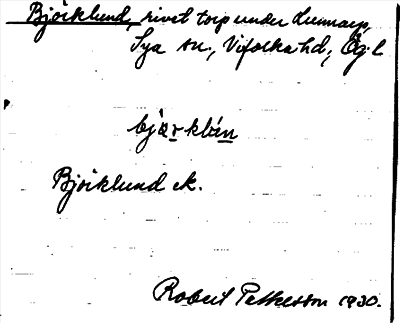 Björklund, rivet torp under Lunnarp,
Sya sn, Vifolka hd, Ög. l
Björklund ek.
Robert Pettersson 1930.